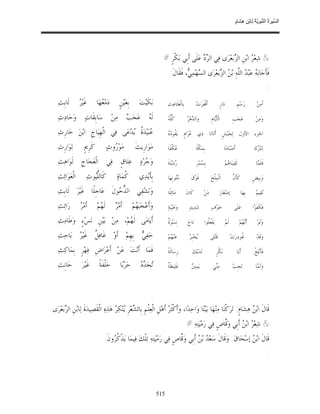 السِّيرَةُ النَّبَوِيَّةُ لِابْنِ هِشَامٍ
شِعْرُ ابْنِ الزِّبَعْرَى فِي الرَّدِّ عَلَى أَبِي بَكْرٍ #
فَأَجَابَهُ عَبْدُ اللَّهِ بْنُ الزِّبَعْرَى السَّهْمِيُّ، فَقَالَ
:
أَمِنْ رَسْمِ دَارٍ أَقْفَرَتْ بِالْعَثَاعِثِ بَكَيْتَ بِعَيْنٍ دَمْعُهَا غَيْرُ لَابِثِ
وَمِنْ عَجَبِ الْأَيَّامِ وَالدَّهْرُ كُلُّهُ لَهُ عَجَبٌ مِنْ سَابِقَاتٍ وَحَادِثِ
الجزء الأول لِجَيْشٍ أَتَانَا ذِي عُرَامٍ يَقُودُهُ عُبَيْدَةُ يُدْعَى فِي الْهِيَاجِ ابْنَ حَارِثِ
لِنَتْرُكَ أَصْنَامًا بِمَكَّةَ عُكَّفًا مَوَارِيثَ مَوْرُوثٍ كَرِيمٍ لِوَارِثِ
فَلَمَّا لَقِينَاهُمْ بِسُمْرِ رُدَيْنَةٍ وَجُرْدٍ عِتَاقٍ فِي الْعَجَاجِ لَوَاهِثِ
وَبِيضٍ كَأَنَّ الْمِلْحَ فَوْقَ مُتُونِهَا بِأَيْدِي كُمَاةٍ كَاللُّيُوثِ الْعَوَائِثِ
نُقِيمُ بِهَا إصْعَارَ مَنْ كَانَ مَائِلًا وَنَشْفِي الذُّحُولَ عَاجِلًا غَيْرَ لَابِثِ
فَكَفُّوا عَلَى خَوْفٍ شَدِيدٍ وَهَيْبَةٍ وَأَعْجَبَهُمْ أَمْرٌ لَهُمْ أَمْرُ رَائِثِ
وَلَوْ أَنَّهُمْ لَمْ يَفْعَلُوا نَاحَ نِسْوَةٌ أَيَامَى لَهُمْ، مِنْ بَيْنِ نَسْءٍ وَطَامِثِ
وَقَدْ غُودِرَتْ قَتْلَى يُخَبِّرُ عَنْهُمْ حَفِيٌّ بِهِمْ أَوْ غَافِلٌ غَيْرُ بَاحِثِ
فَأَبْلِغْ أَبَا بَكْرٍ لَدَيْكَ رِسَالَةً فَمَا أَنْتَ عَنْ أَعْرَاضِ فِهْرٍ بِمَاكِثِ
وَلَمَّا تَجِبْ مِنِّي يَمِينٌ غَلِيظَةٌ تُجَدِّدُ حَرْبًا حَلْفَةً غَيْرَ حَانِثِ
قَالَ ابْنُ هِشَامٍ تَرَكْنَا مِنْهَا بَيْتًا وَاحِدًا، وَأَكْثَرُ أَهْلِ الْعِلْمِ بِالشِّعْرِ يُنْكِرُ هَذِهِ الْقَصِيدَةَ لِابْنِ الزِّبَعْرَى
شِعْرُ ابْنِ أَبِي وَقَّاصٍ فِي رَمْيَتِهِ #
قَالَ ابْنُ إِسْحَاقَ وَقَالَ سَعْدُ بْنُ أَبِي وَقَّاصٍ فِي رَمْيَتِهِ تِلْكَ فِيمَا يَذْكُرُونَ
:
515